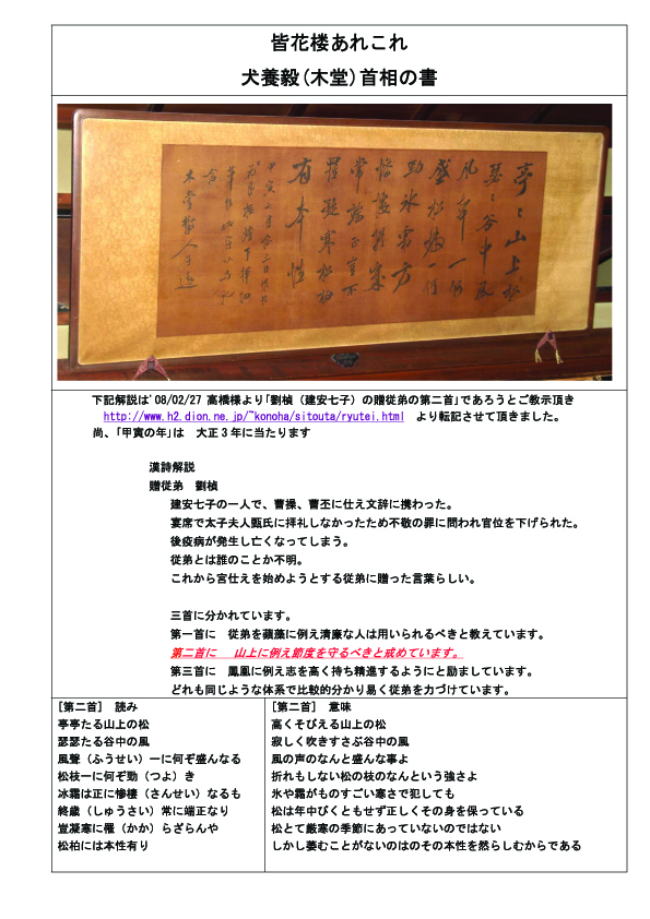 皆花楼あれこれ
犬養毅(木堂)首相の書
亭々山上松
瑟々谷中風
風声一何
盛松枝一何
勁氷霜方
惨悽終歳
常端正豈不
罹凝寒松柏
有本性
下記解説は'08/02/27 高橋様より「劉楨 (建安七子) の贈従弟の第二首」であろうとご教示頂き
http://www.h2.dion.ne.jp/~konoha/sitouta/ryutei.html より転記させて頂きました。
尚、「甲寅の年」は 大正3年に当たります
漢詩解説
贈従弟 劉楨
建安七子の一人で、曹操、曹丕に仕え文辞に携わった。
宴席で太子夫人甄氏に拝礼しなかったため不敬の罪に問われ官位を下げられた。
後疫病が発生し亡くなってしまう。
従弟とは誰のことか不明。
これから宮仕えを始めようとする従弟に贈った言葉らしい。
三首に分かれています。
第一首に 従弟を蘋藻に例え清廉な人は用いられるべきと教えています。
第二首に 山上に例え節度を守るべきと戒めています。
第三首に 鳳凰に例え志を高く持ち精進するようにと励ましています。
どれも同じような体系で比較的分かり易く従弟を力づけています。
[第二首] 読み
亭亭たる山上の松
瑟瑟たる谷中の風
風聲(ふうせい)一に何ぞ盛んなる
松枝一に何ぞ勁(つよ)き
冰霜は正に惨棲(さんせい)なるも
終歳(しゅうさい)常に端正なり
豈凝寒に罹(かか)らざらんや
松柏には本性有り
[第二首] 意味
高くそびえる山上の松
寂しく吹きすさぶ谷中の風
風の声のなんと盛んな事よ
折れもしない松の枝のなんという強さよ
氷や霜がものすごい寒さで犯しても
松は年中びくともせず正しくその身を保っている
松とて厳寒の季節にあっていないのではない
しかし萎むことがないのはのその本性を然らしむからである